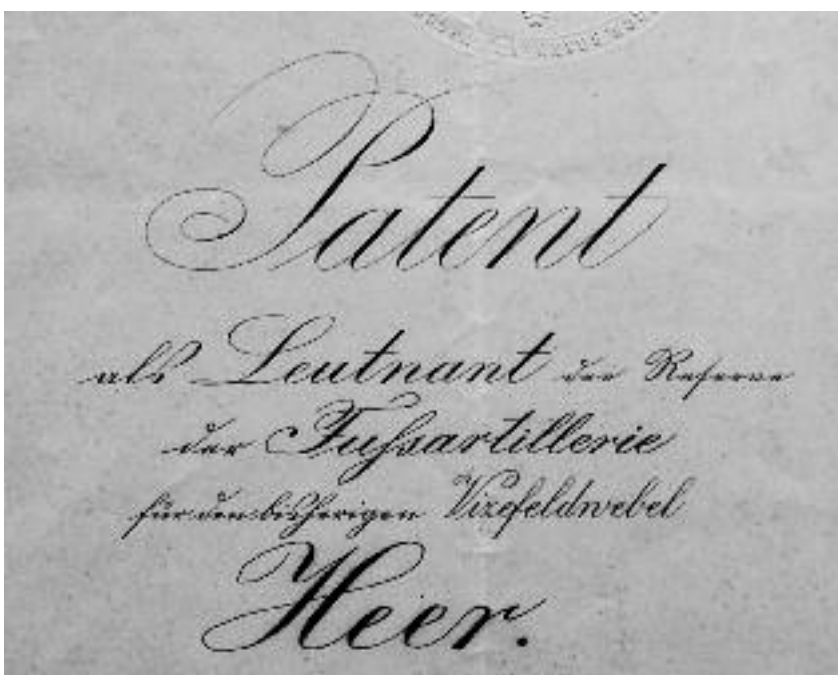 Patent
als Leutnant der Reserve
der Fussartillerie
für den bisherigen Vizefeldwebel
Heer.